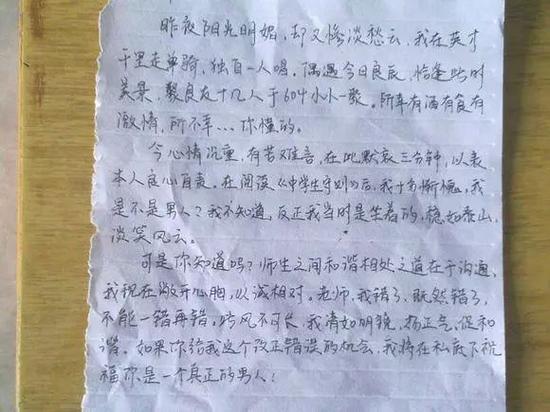 昨夜阳光明媚，却又惨淡愁云，我在英才
千里走单骑，独自一人喝，偶遇今日良辰，恰逢此时
美景，聚良友十几人于604小小一聚。所幸有酒有食有
激情，所不幸...你懂的。
今心情沉重，有苦难言，在此默哀三分钟，以表
本人良心自责。在阅读《中学生守则》后，我十分惭愧，我
是不是男人？我不知道，反正我当时是坐着的，稳如泰山，
谈笑风云。
可是你知道吗？师生之间和谐相处之道在于沟通，
我现在敞开心胸，以诚相对。老师，我错了，既然错了，
不能一错再错，歪风不可长，我清如明镜，扬正气，促和
谐。如果你给我这个改正错误的机会，我将在私底下祝
福你是一个真正的男人！